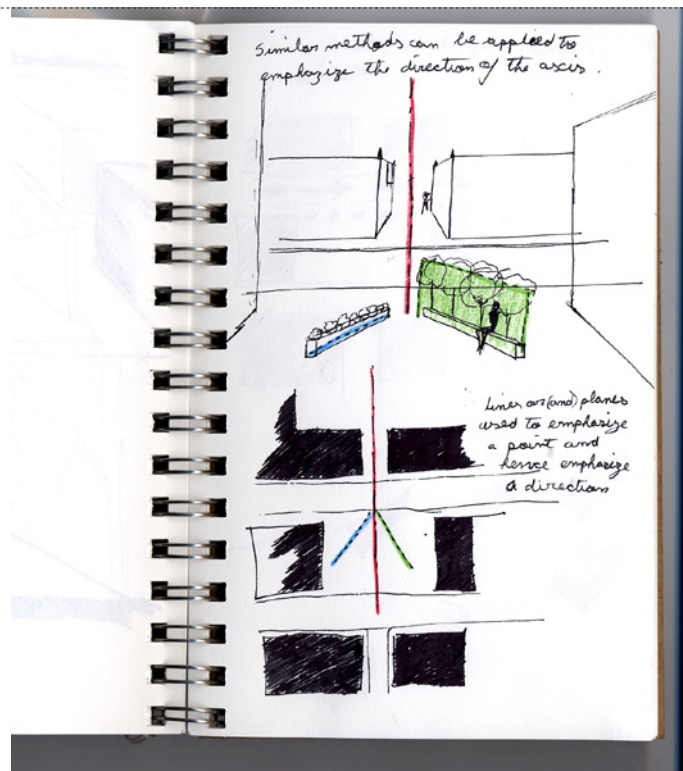 Similar methods can be applied to
emphazize the direction of the axis.
Lines or (and) planes
used to emphasize
a point and
hence emphasize
a direction